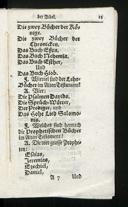 der Bibel. 15
Die zwey Bücher der Kö-
nige.
Die zwey Bücher der
Chronicken.
Das Buch Esra.
Das Buch Nehemia.
Das Buch Esther.
Und
Das Buch Hiob.
F. Wieviel sind der Lehr-
Bücher in Alten Testament?
A. Vier:
Die Psalmen Davids.
Die Sprüch-Wörter.
Der Prediger, und
Das Hohe Lied Salomo-
nis.
F. Welches sind hernach
die Prophetischen Bücher
im Alten Testament?
A. Die vier große Prophe-
ten:
Esaias,
Jeremias,
Ezechiel,
Daniel.
A 7 Und